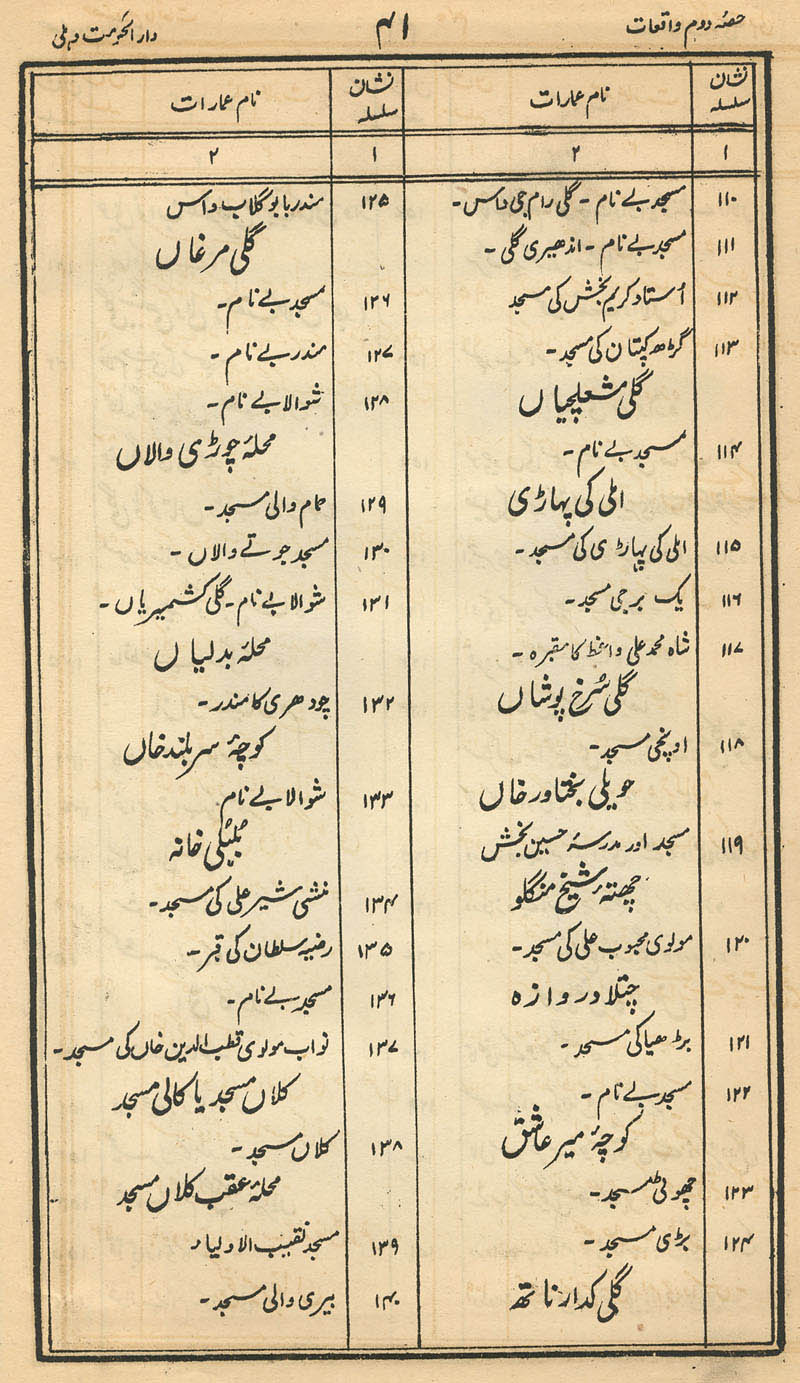 حصہ دوم واقعات
۴۱
دار الحکومت دہلی
نشان سلسلہ
نام عمارات
۱
۲
۱۱۰ مسجد بے نام - گلی رام جی داس -
۱۱۱ مسجد بے نام - اندھیری گلی -
۱۱۲ اُستاد کریم بخش کی مسجد
۱۱۳ گڑھ کپتان کی مسجد -
گلی مشعلچیاں
۱۱۴ مسجد بے نام -
املی کی پہاڑی
۱۱۵ املی کی پہاڑی کی مسجد -
۱۱۶ یک برجی مسجد -
۱۱۷ شاہ محمد علی واعظ کا مقبرہ -
گلی سُرخ پوشاں
۱۱۸ اونچی مسجد -
حویلی بختاور خاں
۱۱۹ مسجد اور مدرسۂ حسین بخش
چھتۂ شیخ منگلو
۱۲۰ مولوی محبوب علی کی مسجد -
چتلا دروازہ
۱۲۱ بڑھیا کی مسجد -
۱۲۲ مسجد بے نام -
کوچۂ میر عاشق
۱۲۳ چھوٹی مسجد -
۱۲۴ بڑی مسجد -
گلی کدار ناتھ
نشان سلسلہ
نام عمارات
۱
۲
۱۲۵ مندر بابو گلاب داس
گلی مرغاں
۱۲۶ مسجد بے نام -
۱۲۷ مندر بے نام -
۱۲۸ شوالا بے نام -
محلۂ چوڑی والاں
۱۲۹ حمام والی مسجد -
۱۳۰ مسجد جوتے والاں -
۱۳۱ شوالا بے نام - گلی کشمیریاں -
محلۂ بدلیاں
۱۳۲ چودھری کا مندر -
کوچۂ سربلند خاں
۱۳۳ شوالا بے نام
بُلبُلی خانہ
۱۳۴ منشی شیر علی کی مسجد -
۱۳۵ رضیہ سلطان کی قبر -
۱۳۶ مسجد بے نام -
۱۳۷ نواب مولوی قطب الدین خاں کی مسجد -
کلاں مسجد یا کالی مسجد
۱۳۸ کلاں مسجد -
محلۂ عقب کلاں مسجد
۱۳۹ مسجد نقیب الاولیاء
۱۴۰ بیری والی مسجد -